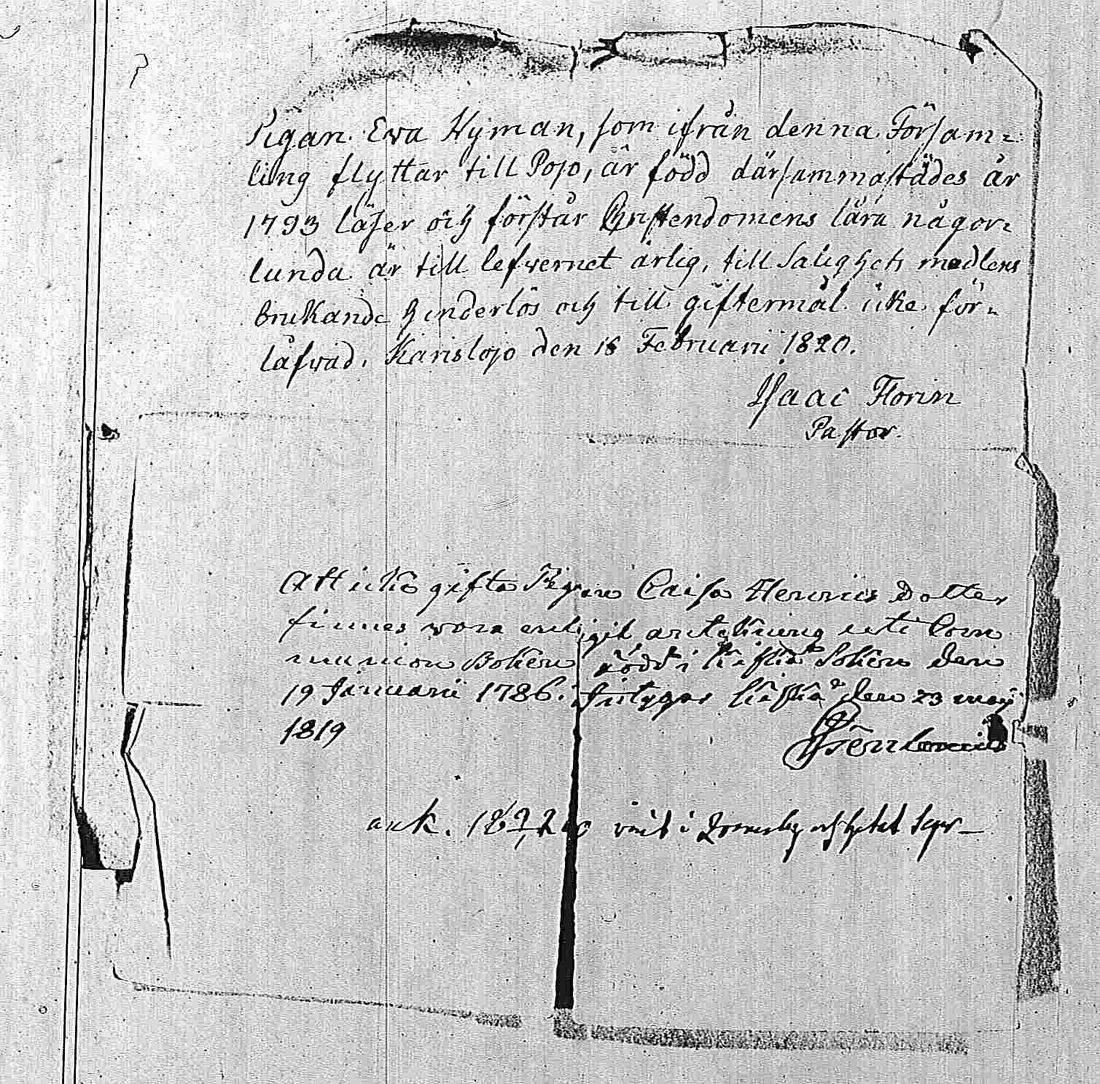 Pigan Eva Nyman, som ifrån denna Försam=
ling flyttar till Pojo, är född därsammastädes år
1793 läser och förstår Christendomens lära någor=
lunda är till lefvernet ärlig, till Salighets medlens
brukande hinderlös och till giftermål icke för=
låfvad. Karislojo den 18 Februarii 1820.
Isaac Florin
Pastor.
Att icke gifta Pigan Caisa Henrics Dotter
finnes vara enligit antekning uti Com
munion Boken född i Kiskå Soken den
19 Januarii 1786. intygar Kiskå den 23 maij
1819
ank. 1820 i och